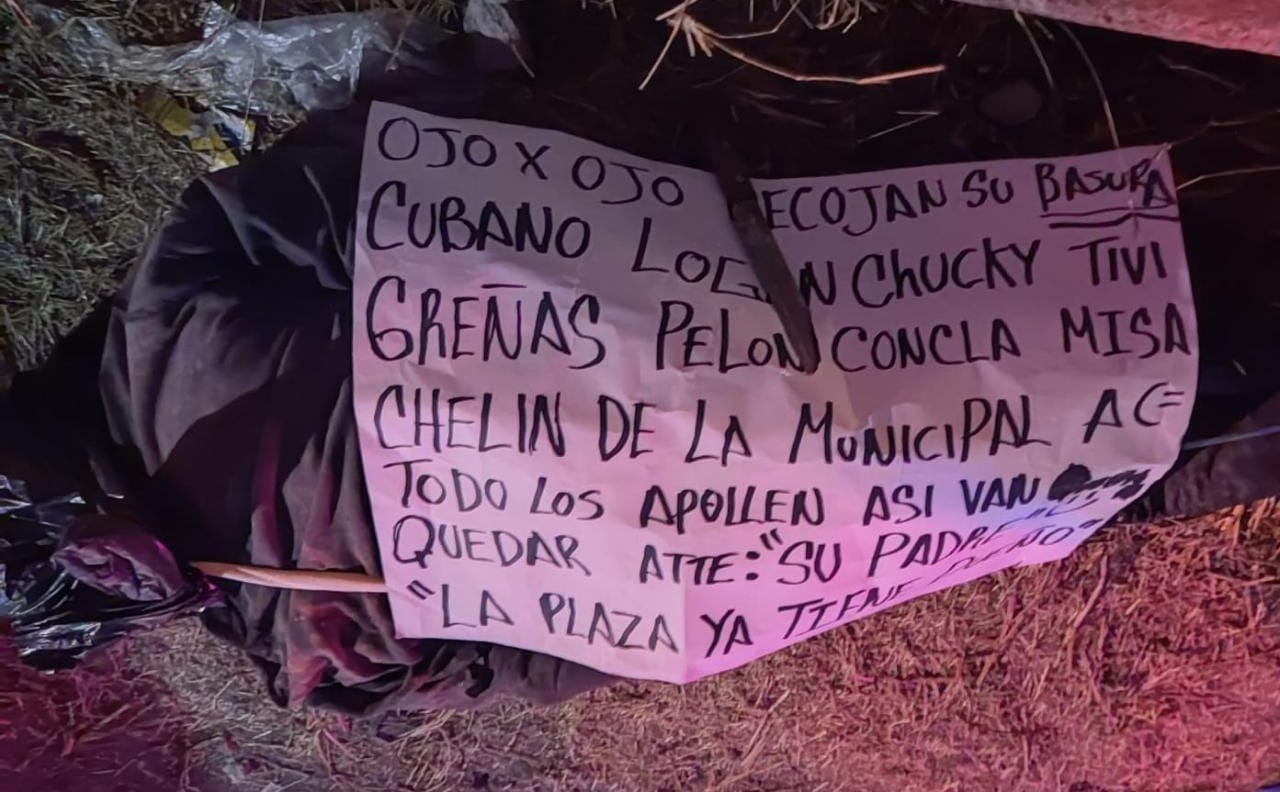 OJO X OJO ECOJAN SU BASURA
CUBANO LOGAN CHUCKY TIVI
GREÑAS PELON CONCLA MISA
CHELIN DE LA MUNICIPAL A
TODO LOS APOLLEN ASI VAN
QUEDAR ATTE: "SU PADRE
"LA PLAZA YA TIENE